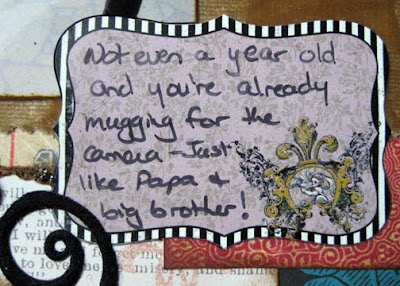 Not even a year old
and you're already
mugging for the
camera - Just
like Papa &
big brother!
will
I will
to love her in misery, and sham